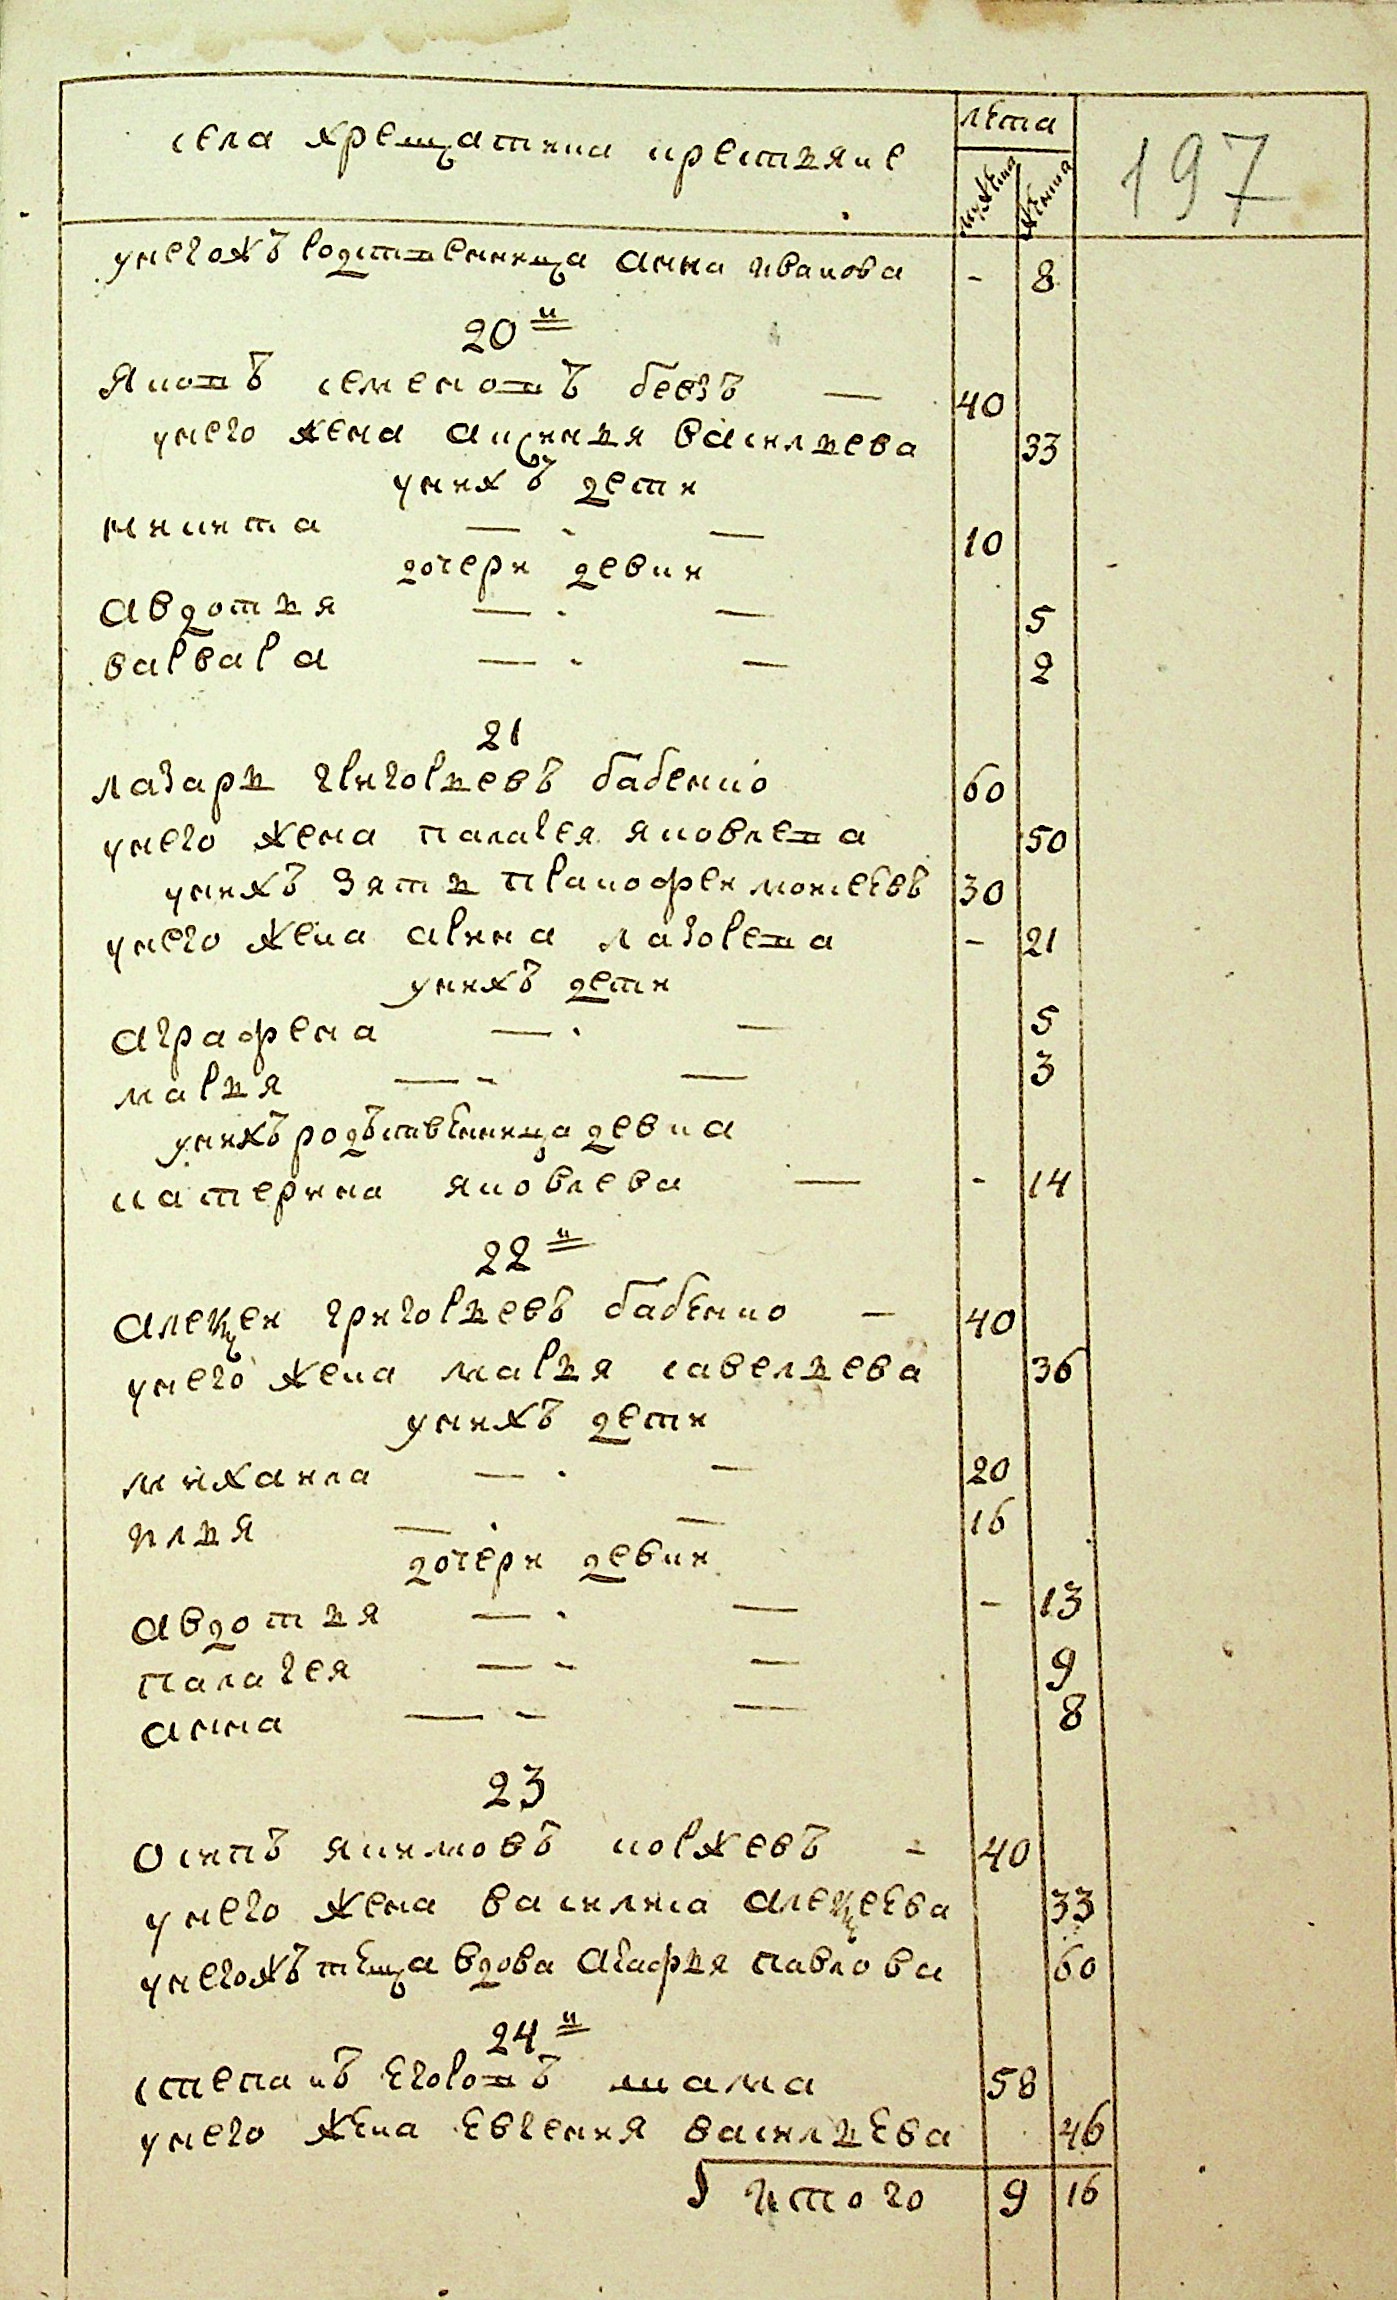 села хрещатика крестьяне
лѣта
мужеска
женска
197
унегожъ родственница анна иванова - 8
20 й
яковъ семеновъ безъ — 40
унего жена аксинья васильева 33
унихъ дети
никита — - — 10
дочери девки
авдотья — - — 5
варвара — - — 2
21
лазарь григорьевъ бабенко 60
унего жена палагея яковлева 50
унихъ зять пракофеи моксеевъ 30
унего жена арина лазорева - 21
унихъ дети
аграфена — - — 5
марья — - — 3
унихъ родъственница девка
катерина яковлева — - 14
22 й
алексеи григорьевъ бабенко — 40
унего жена марья савельева 36
унихъ дети
михаила — - — 20
илья — - — 16
дочери девки
авдотья — - — - 13
палагея — - — 9
анна — - — 8
23
осипъ якимовъ коржевъ - 40
унего жена василиса алексеева 33
унегожъ теща вдова агафья павлова 60
24 й
степанъ егоровъ шама 58
унего жена евгения васильева 46
итого 9 16